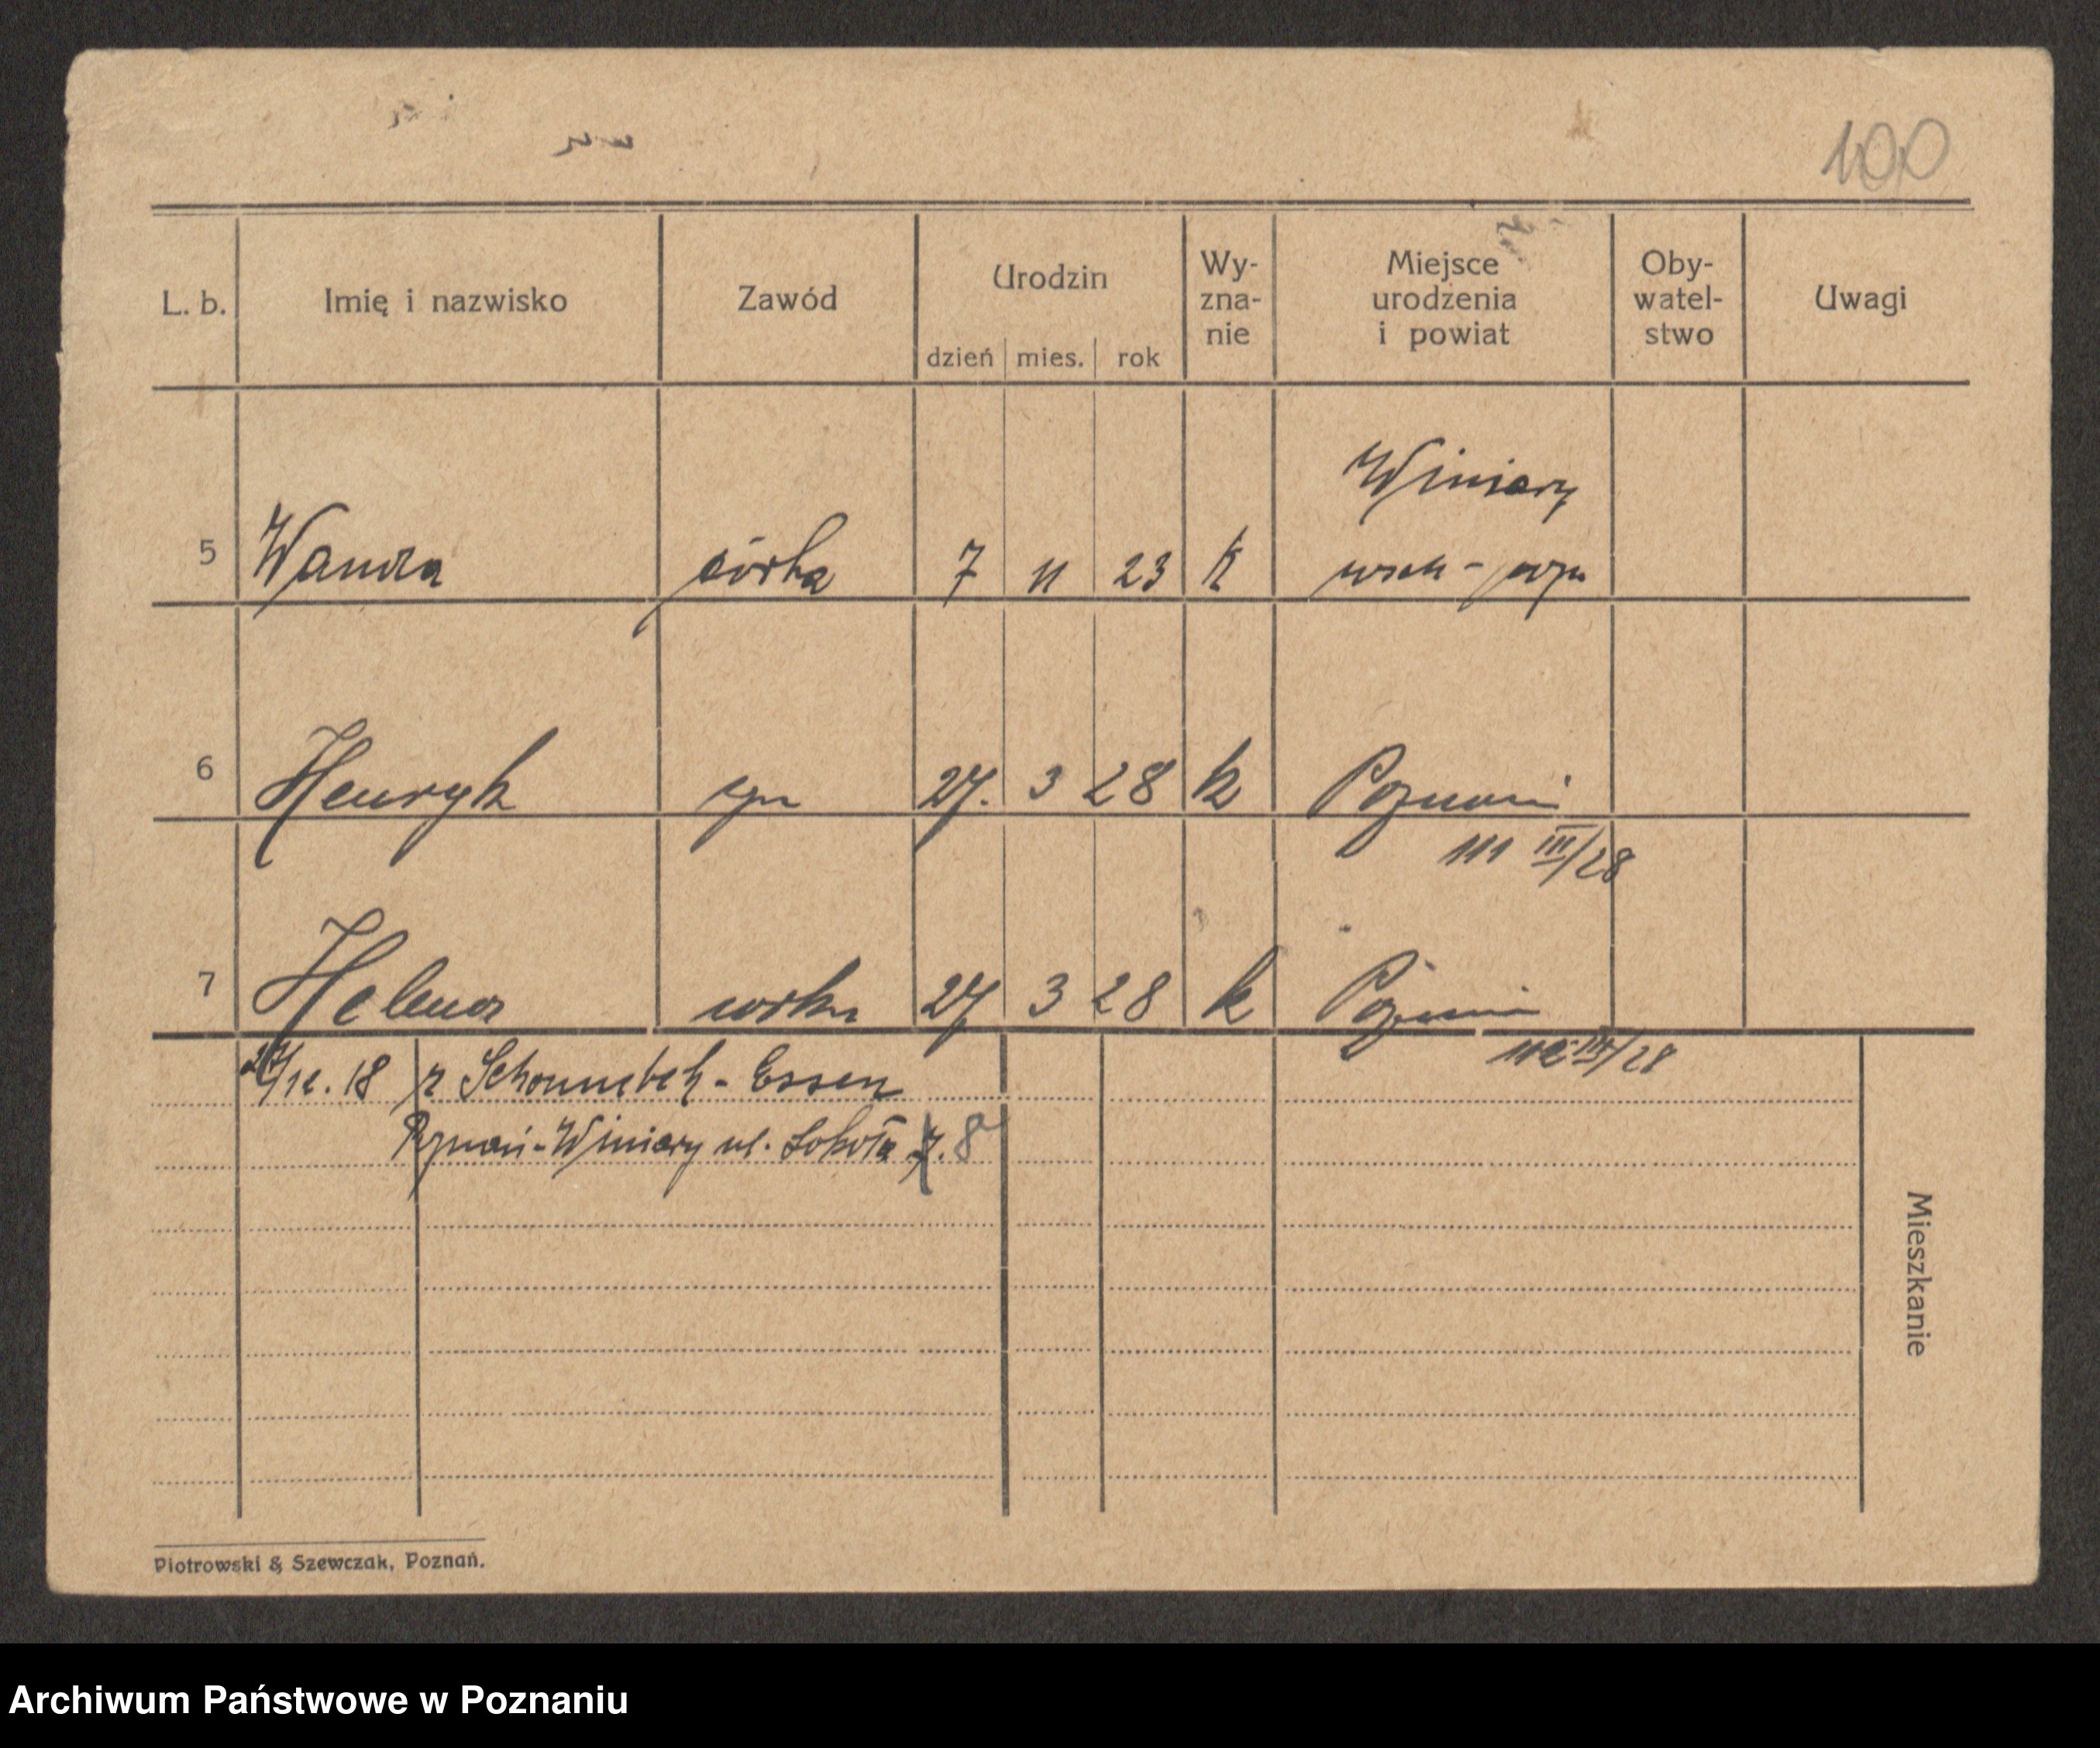 100
L. b. Imię i nazwisko Zawód Urodzin dzień mies. rok Wy-zna-nie Miejsce urodzenia i powiat Oby-watel-stwo Uwagi
Winiary
5 Wanda córka 7 11 23 k wsch-pozn
6 Henryk syn 27. 3 28 k Poznań
111 III/28
7 Helena córka 27 3 28 k Poznań
112 III/28
/12. 18 z Schonnebek - Essen
Poznań-Winiary ul. Sokoła 7. 8
Mieszkanie
Piotrowski & Szewczak, Poznań.
Archiwum Państwowe w Poznaniu